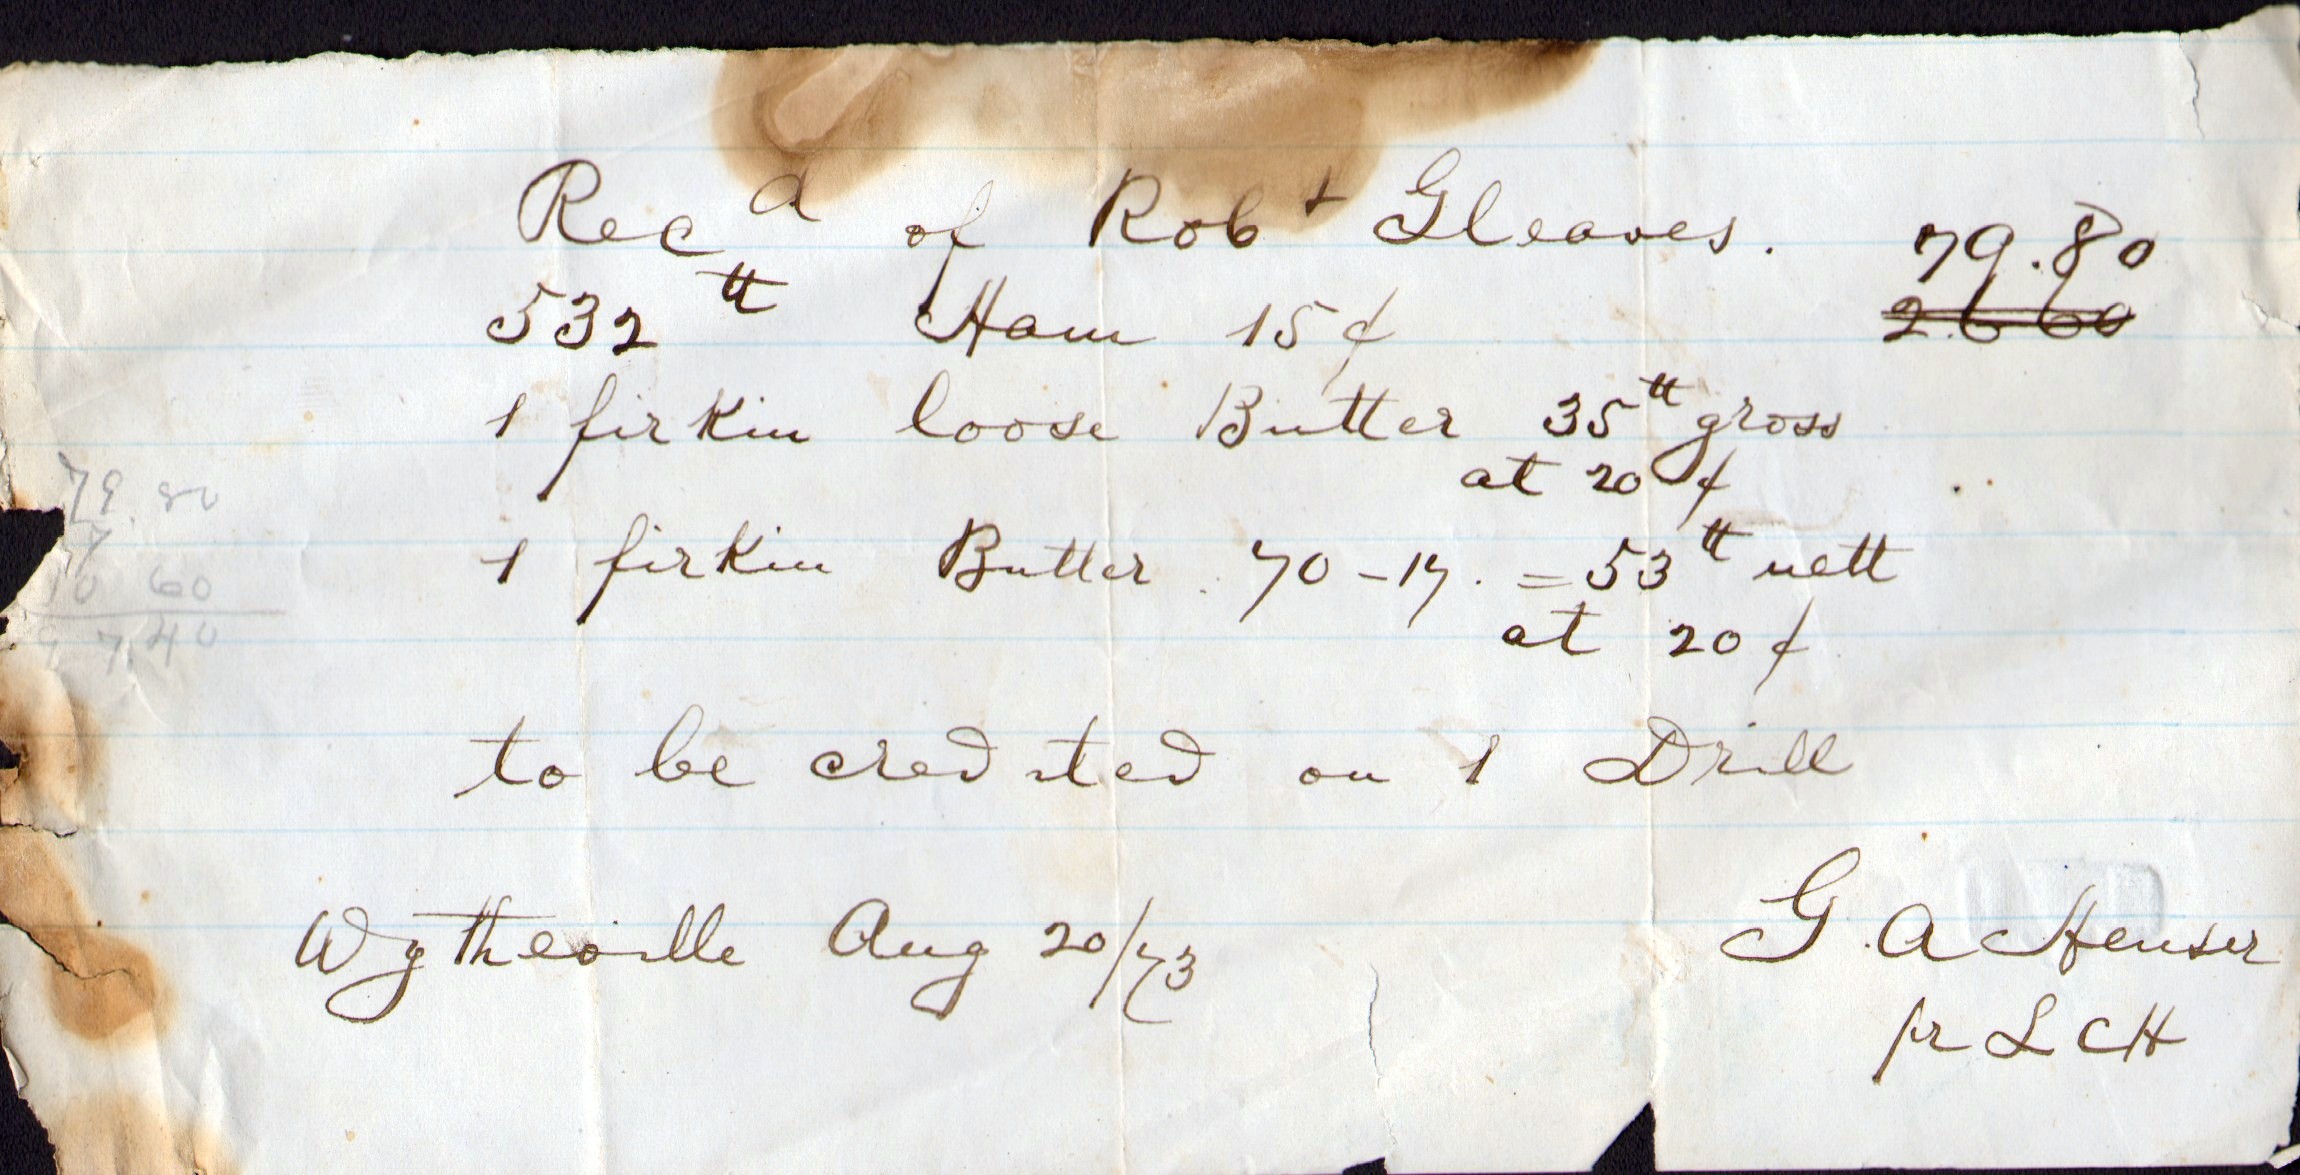 Recd of Robt Gleaves. 79.80
532 tt Ham 15¢ 2660
1 firkin loose Butter 35 tt gross
at 20¢
1 firkin Butter 70-17. = 53 tt nett
at 20¢
to be credited on 1 Drill
Wytheville Aug 20/73
G. A Heuser
pr L C H
79.80
7
10 60
97.40